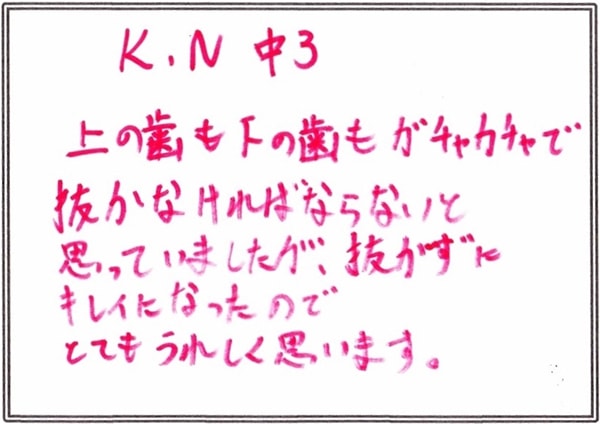 K.N 中3
上の歯も下の歯もガチャガチャで
抜かなければならないと
思っていましたが、抜かずに
キレイになったので
とてもうれしく思います。